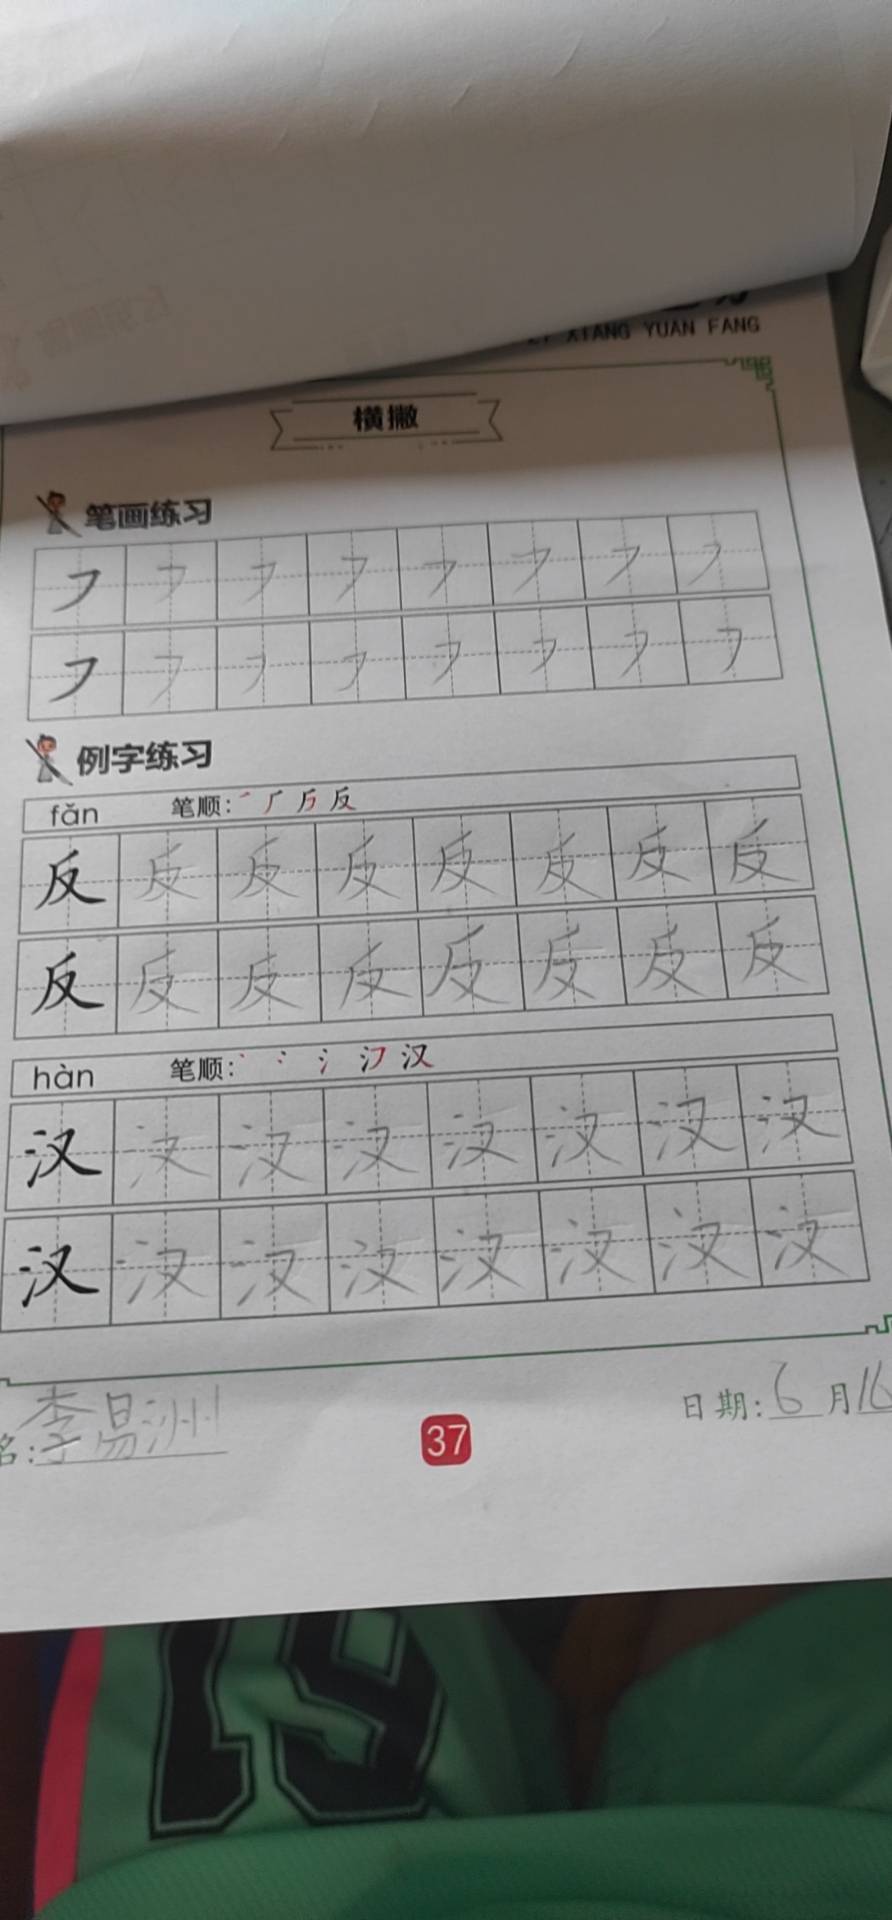 XIANG YUAN FANG
横撇
笔画练习
㇇ ㇇ ㇇ ㇇ ㇇ ㇇ ㇇ ㇇
㇇ ㇇ ㇇ ㇇ ㇇ ㇇ ㇇ ㇇
例字练习
fǎn 笔顺: 反
反 反 反 反 反 反 反 反
反 反 反 反 反 反 反 反
hàn 笔顺: 汉
汉 汉 汉 汉 汉 汉 汉 汉
汉 汉 汉 汉 汉 汉 汉 汉
名: 李易洲 37 日期: 6 月 16
19